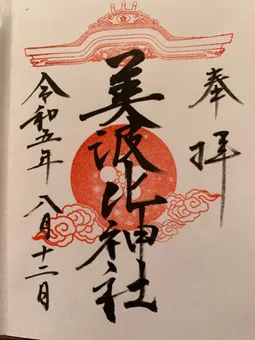 奉拝
美波比神社
令和五年八月十二日